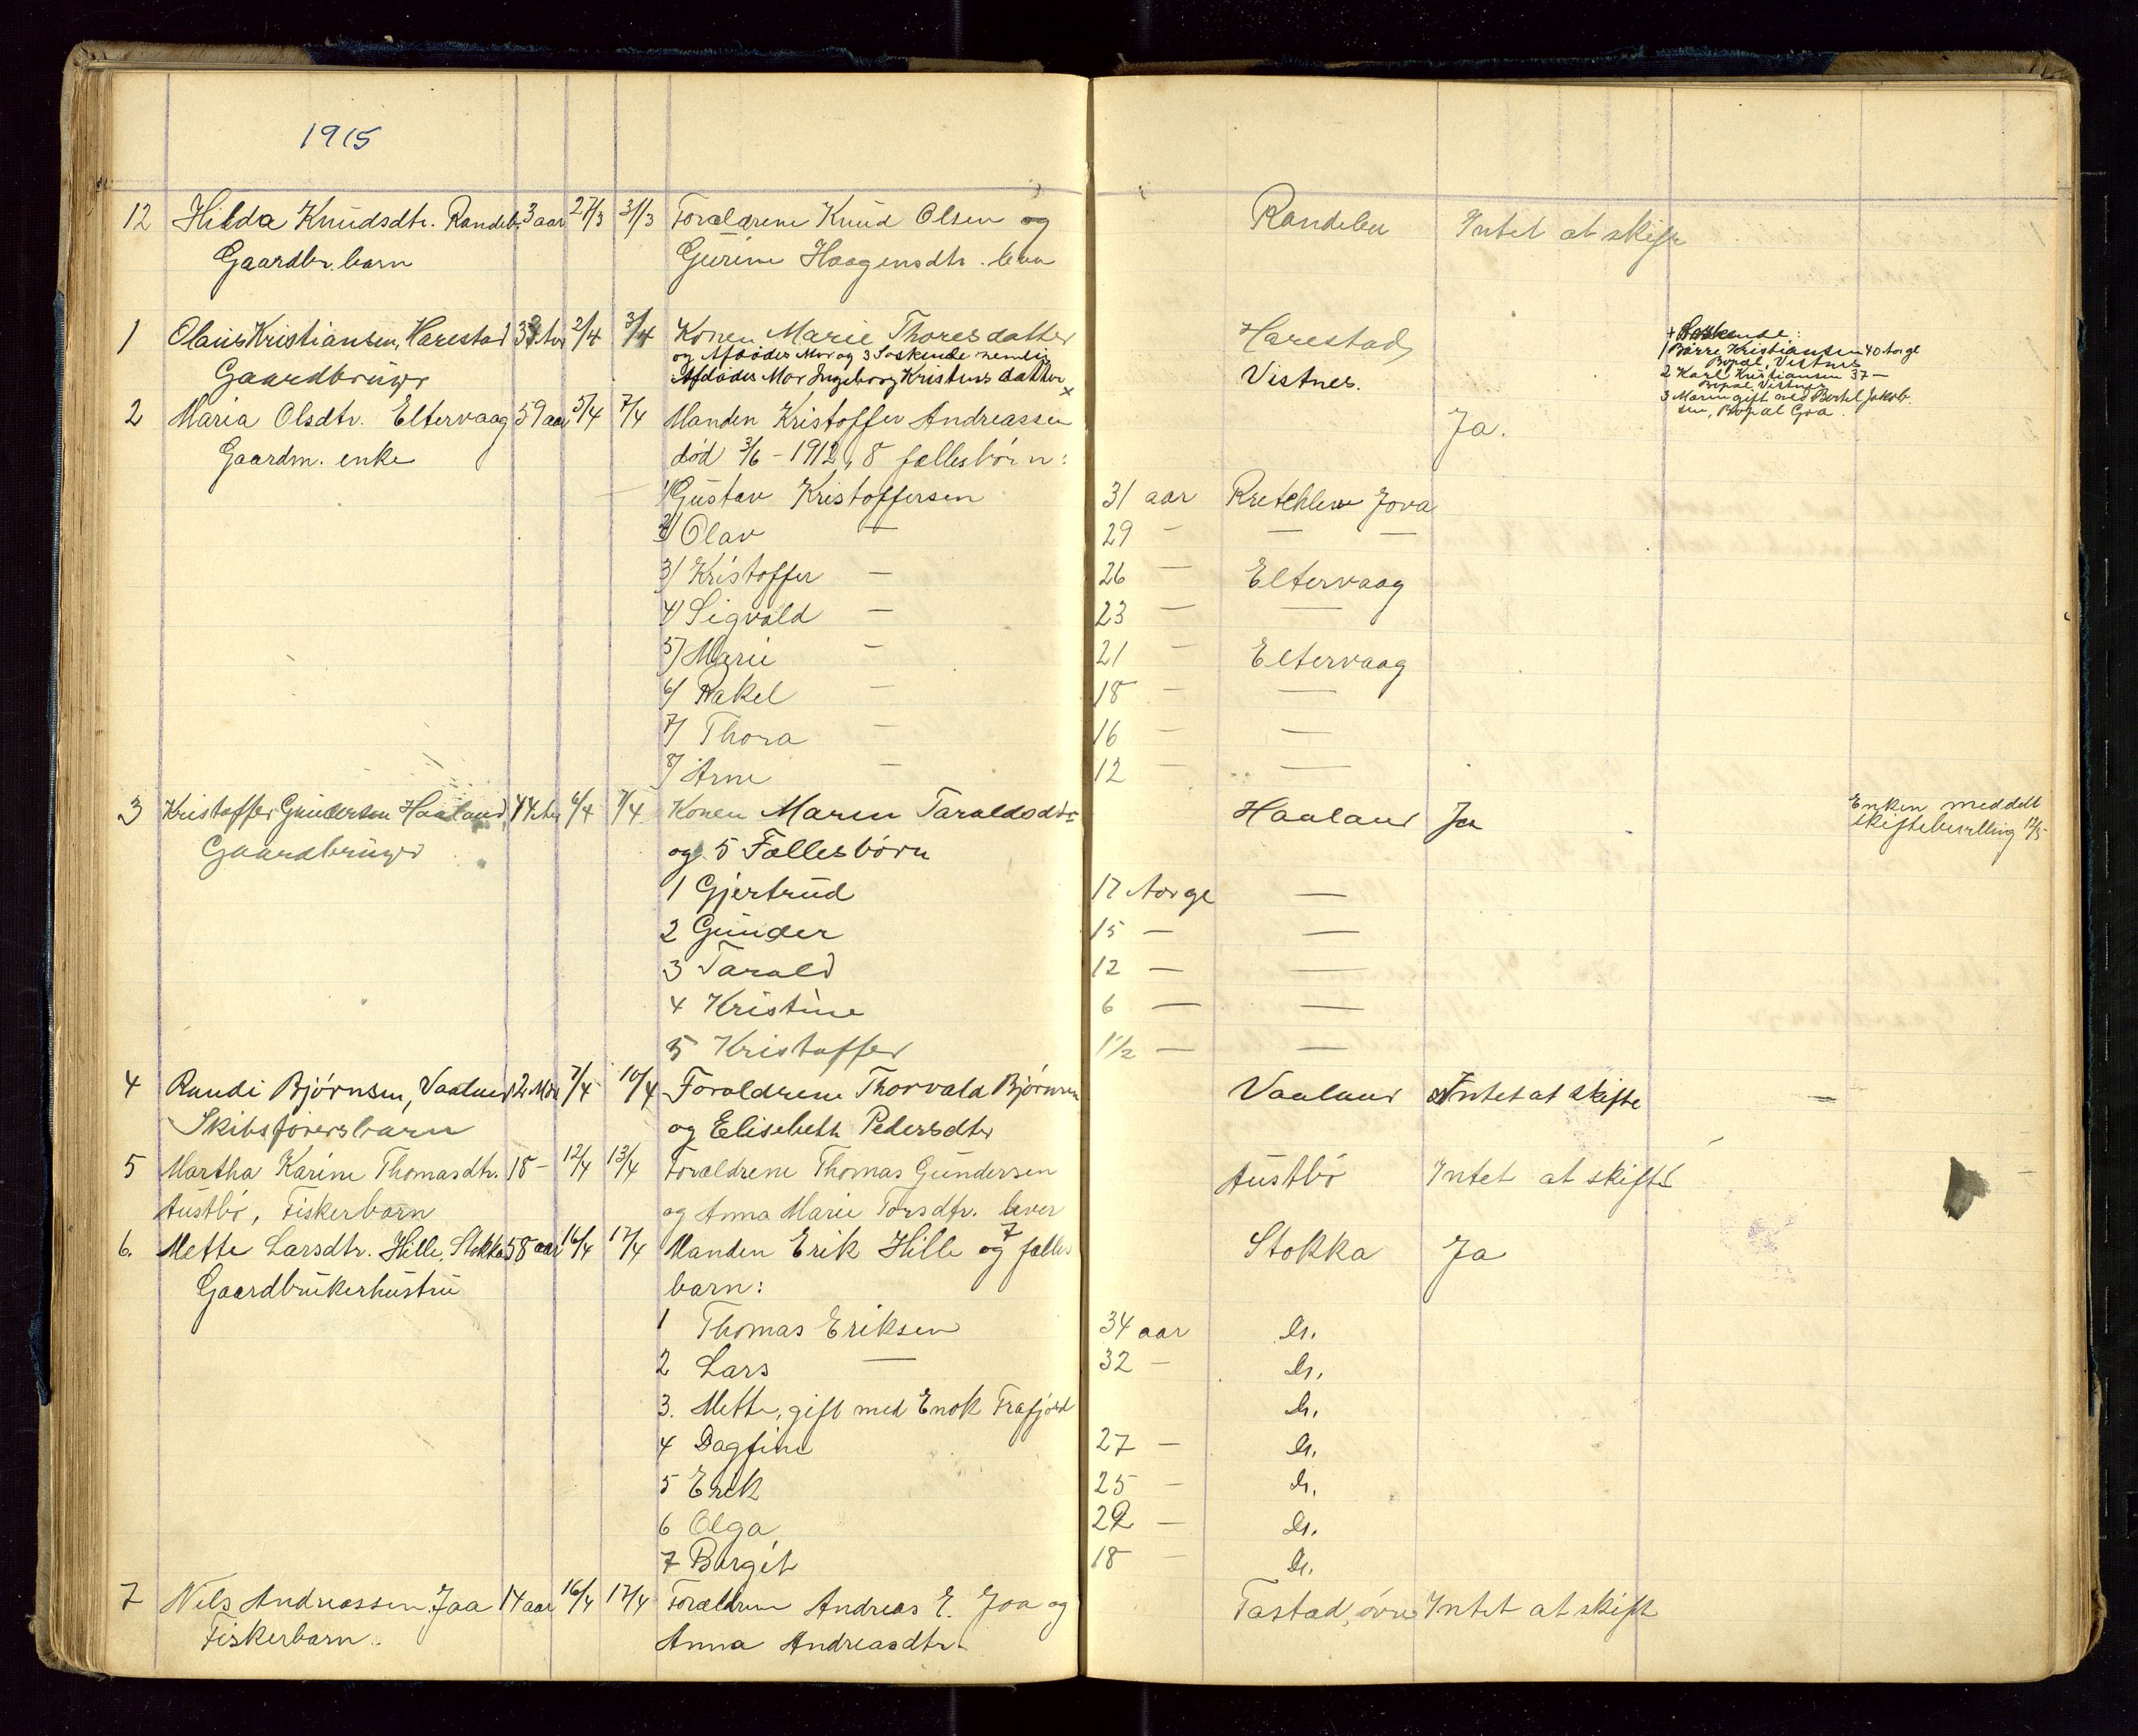 1915
12 Hilda Knudsdtr. Randeb. 3 aar 27/3 31/3 Forældrene Knud Olsen og Randeberg Intet at skifte
Gaardbr. barn Gurine Haagensdtr. lever
1 Olaus Kristiansen, Harestad 2/4 3/4 Konen Marie Thoresdatter Harestad,
og Afdødes Mor og 3 Søskende nemlig
Gaardbruger Afdødes Mor Ingeborg Kristensdatter x Vistnes.
+ Søskende:
1 Børre Kristiansen 40 Aar gl
Bopæl, Vistnes
2 Karl Kristiansen 37 —
Bopæl Vistnes
3 Maren gift med Bertel Jakob-
sen, Bopæl Goa.
2 Maria Olsdtr. Eltervaag 59 aar 5/4 7/4 Manden Kristoffer Andreassen Ja.
Gaardm. enke død 3/6 - 1912, 8 fællesbørn:
1/ Gustav Kristoffersen 31 aar Jova
2/ Olav — 29 — — —
3/ Kristoffer — 26 — Eltervaag
4/ Sigvald — 23 — —
5/ Marie — 21 — Eltervaag
6/ Rakel — 18 — —
7/ Thora — 16 — —
8/ Arne — 12 — —
3 Kristoffer Gundersen Haaland, 44 Aar 6/4 7/4 Konen Maren Taraldsdtr Haaland Ja Enken meddelt
Gaardbruger og 5 Fællesbørn skiftebevilling 12/5
1 Gjertrud 17 Aar gl —
2 Gunder 15 — —
3 Tarald 12 — —
4 Kristine 6 — —
5 Kristoffer 1 1/2 — —
4 Randi Bjørnsen, Vaaland 2 Mdr 7/4 10/4 Forældrene Thorvald Bjørnsen Vaaland Intet at skifte —
Skibsførersbarn og Elisebeth Pedersdtr
5 Martha Karine Thomasdtr. 18 — 12/4 13/4 Forældrene Thomas Gundersen Austbø Intet at skifte
Austbø, Fiskerbarn og Anna Marie Torsdtr. lever
6. Mette Larsdtr. Hille, Stokka 58 aar 16/4 17/4 Manden Erik Hille og 7 fælles Stokka Ja
Gaardbrukerhustru barn:
1 Thomas Eriksen 34 aar Ds.
2 Lars — 32 — Ds.
3. Mette, gift med Enok Frafjord Ds.
4 Dagfine 27 — Ds.
5 Erik 25 — Ds.
6 Olga 22 — Ds.
7 Borgit 18 — Ds.
7 Nils Andreassen Joa 14 aar 16/4 17/4 Forældrene Andreas E. Joa og Tastad, øvre Intet at skifte
Fiskerbarn. Anna Andreasdtr.